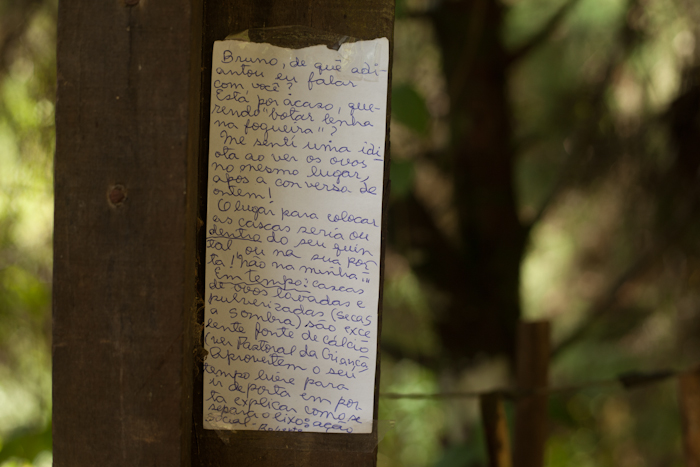 Bruno, de quê adi-
antou eu falar
com você?
Está, por acaso, que-
rendo "botar lenha
na fogueira"?
Me senti uma idi-
ota ao ver os ovos
no mesmo lugar,
após a conversa de
ontem!
O lugar para colocar
as cascas seria ou
dentro do seu quin-
tal ou na sua por-
ta! "não na minha"
Em tempo: cascas
de ovos lavadas e
pulverizadas (secas
a sombra) são exce-
lente fonte de cálcio
(ver Pastoral da Criança
Aproveitem o seu
tempo livre para
ir de porta em por-
ta explicar como se
separa o lixo. ação
social -